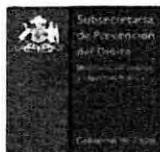 Subsecretaría
de Prevención
del Delito
Gobierno de Chile